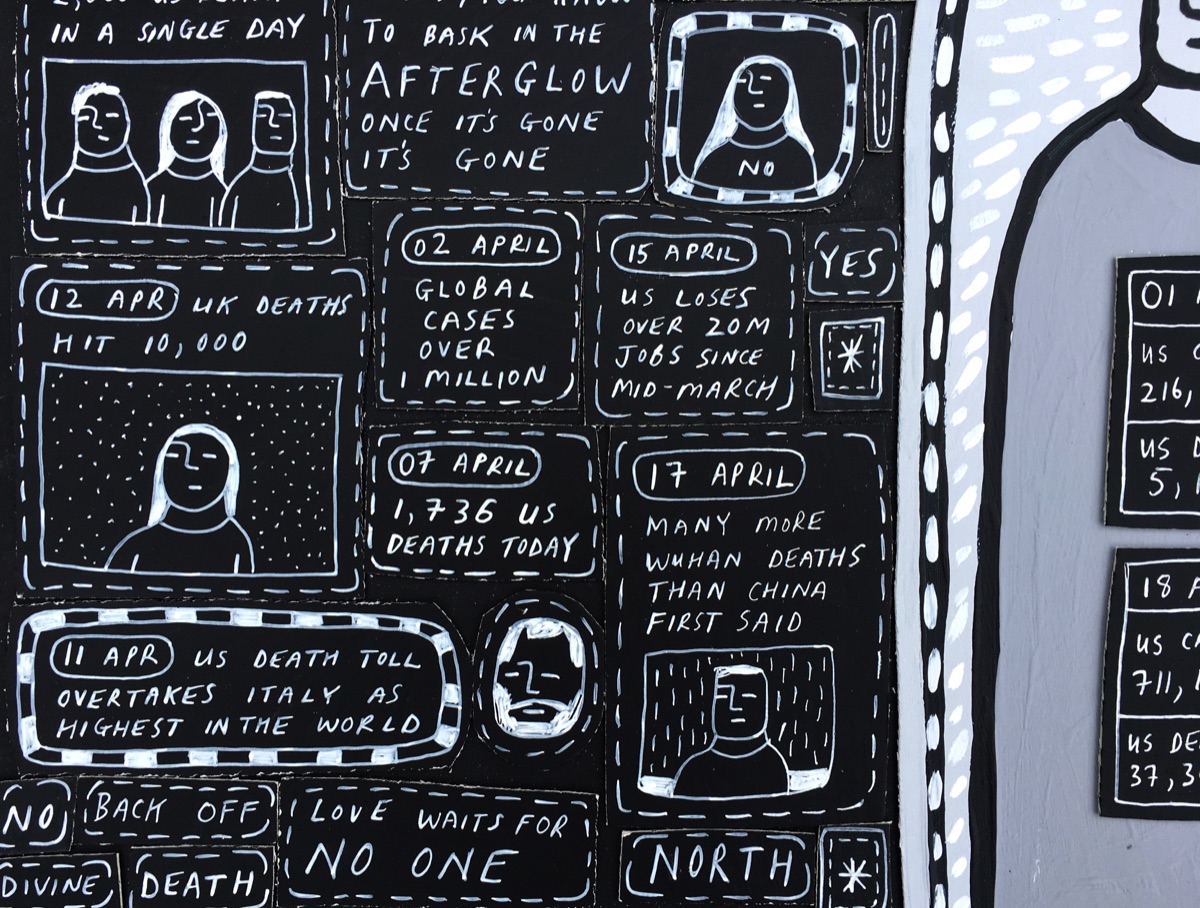 IN A SINGLE DAY
TO BASK IN THE
AFTERGLOW
ONCE IT'S GONE
IT'S GONE
NO
02 APRIL
GLOBAL
CASES
OVER
1 MILLION
15 APRIL
US LOSES
OVER 20M
JOBS SINCE
MID-MARCH
YES
*
12 APR UK DEATHS
HIT 10,000
07 APRIL
1,736 US
DEATHS TODAY
17 APRIL
MANY MORE
WUHAN DEATHS
THAN CHINA
FIRST SAID
11 APR US DEATH TOLL
OVERTAKES ITALY AS
HIGHEST IN THE WORLD
NO
BACK OFF
LOVE WAITS FOR
NO ONE
DIVINE
DEATH
NORTH
*
01
US
216,
US
5,
18
US
711,
US DE
37,3